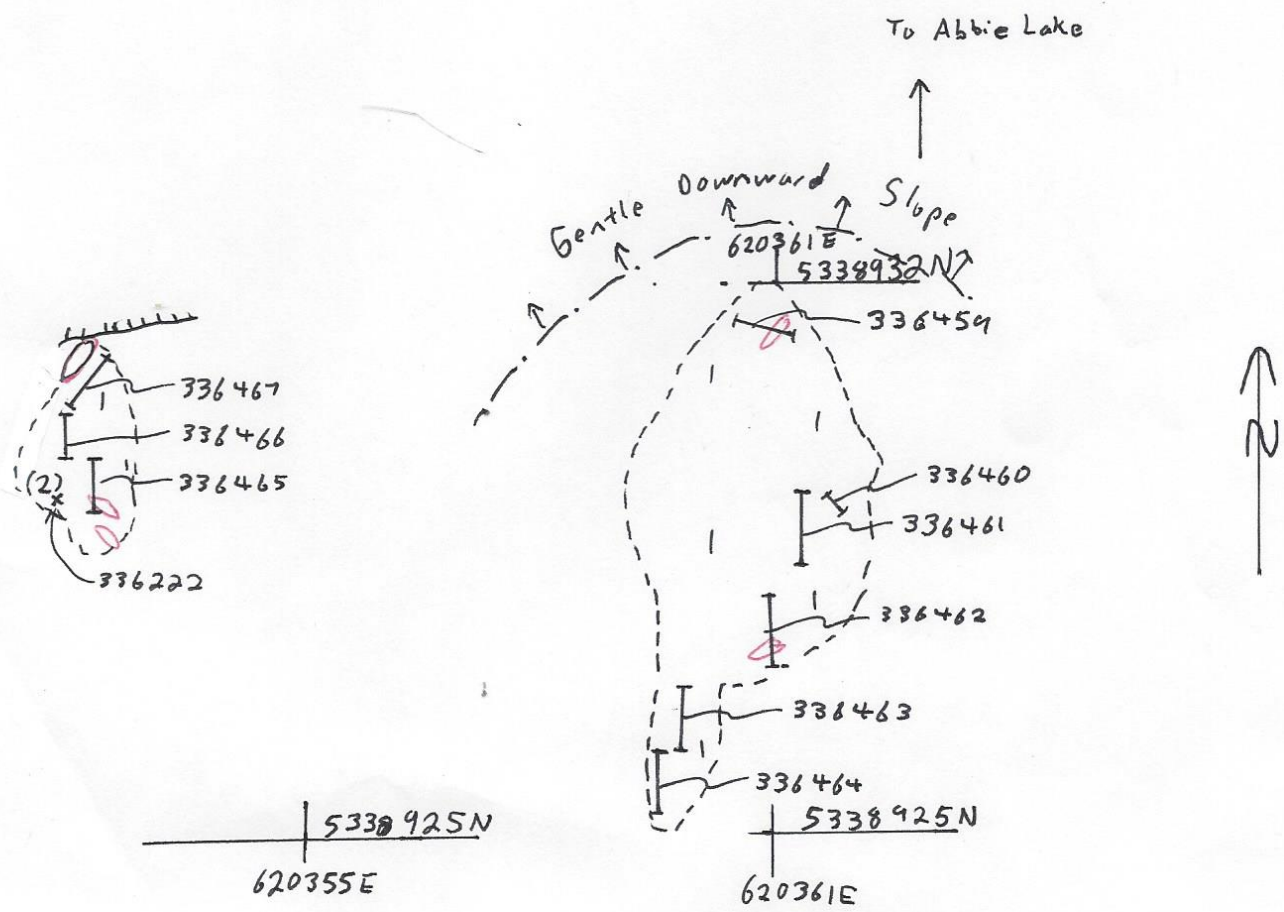 To Abbie Lake
Gentle Downward Slope
620361E
5338932N
336459
336467
336466
(2)
336465
336222
336460
336461
336462
336463
336464
5338925N
620355E
5338925N
620361E
N